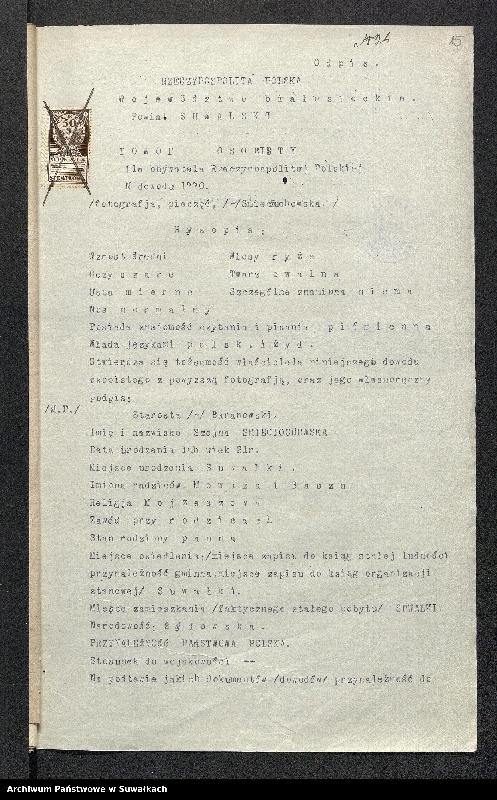 15
O d p i s .
RZECZYPOSPOLITA POLSKA
W o j e w ó d z t w o  b i a ł o s t o c k i e .
Powiat S U W A L S K I
D O W Ó D  O S O B I S T Y
dla obywatela Rzeczypospolitej Polskiej
N dowodu 1220.
/fotografja, pieczęć, /-/
R y s o p i s ;
Wzrost średni Włosy r y ż e
Oczy s z a r e Twarz o w a l n a
Usta m i e r n e Szczególne znamiona n i e m a
Nos n o r m a l n y
Posiada znajomość czytania i pisania p i ś m i e n n a
Włada językami p o l s k . i ż y d .
Stwierdza się tożsamość właściciela niniejszego dowodu
osobistego z powyższą fotografją, oraz jego własnoręczny
podpis;
/M.P./ Starosta /-/ Baranowski.
Imię i nazwisko Szejna
Data urodzenia lub wiek 21r.
Miejsce urodzenia S u w a ł k i .
Imiona rodziców M o w s z a i
Religja M o j ż e s z o w a
Zawód przy r o d z i c a c h
Stan rodzinny p a n n a
Miejsce osiedlenia/miejsce zapisu do ksiąg stałej ludności
przynależność gminna,miejsce zapisu do ksiąg organizacji
stanowej/ S u w a ł k i .
Miejsce zamieszkania /faktycznego stałego pobytu/ SUWAŁKI.
Narodowość Ż y d o w s k a .
PRZYNALEŻNOŚĆ PAŃSTWOWA POLSKA.
Stosunek do wojskowości --
Na podstawie jakich dokumentów /dowodów/ przynależność do
Archiwum Państwowe w Suwałkach